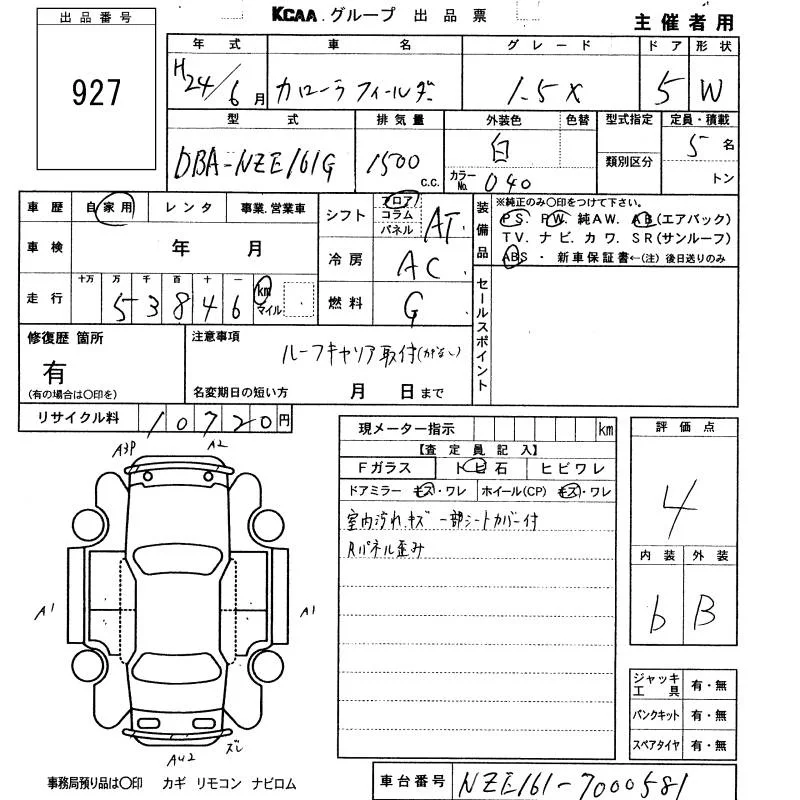 KCAA グループ 出品票
主催者用
出品番号
927
年式 車名 グレード ドア 形状
H24/6月 カローラフィールダー 1.5X 5 W
型式 排気量 外装色 色替 型式指定 定員・積載
DBA-NZE161G 1500 c.c. 白 5名
カラーNo. 040 類別区分 トン
車歴 自家用 レンタ 事業.営業車
シフト フロア コラム パネル AT
装備品
※純正のみ〇印をつけて下さい。
PS. PW. 純AW. AB(エアバック)
TV. ナビ. カワ. SR(サンルーフ)
ABS ・ 新車保証書←(注) 後日送りのみ
車検 年 月
冷房 AC
走行 十万 万 千 百 十 一
53846 km マイル
燃料 G
セールスポイント
修復歴 箇所
有
(有の場合は〇印を)
注意事項
ルーフキャリア取付(カギなし)
名変期日の短い方 月 日まで
リサイクル料 10720円
現メーター指示 km
【査定員記入】
Fガラス トビ石 ヒビワレ
ドアミラー キズ・ワレ ホイール(CP) キズ・ワレ
室内汚れ.キズ 一部シートカバー付
Rパネル歪み
評価点
4
内装 外装
6 B
A3P A2
A1 A1
AU2 ズレ
ジャッキ工具 有・無
パンクキット 有・無
スペアタイヤ 有・無
事務局預り品は〇印 カギ リモコン ナビロム
車台番号 NZE161-7000581